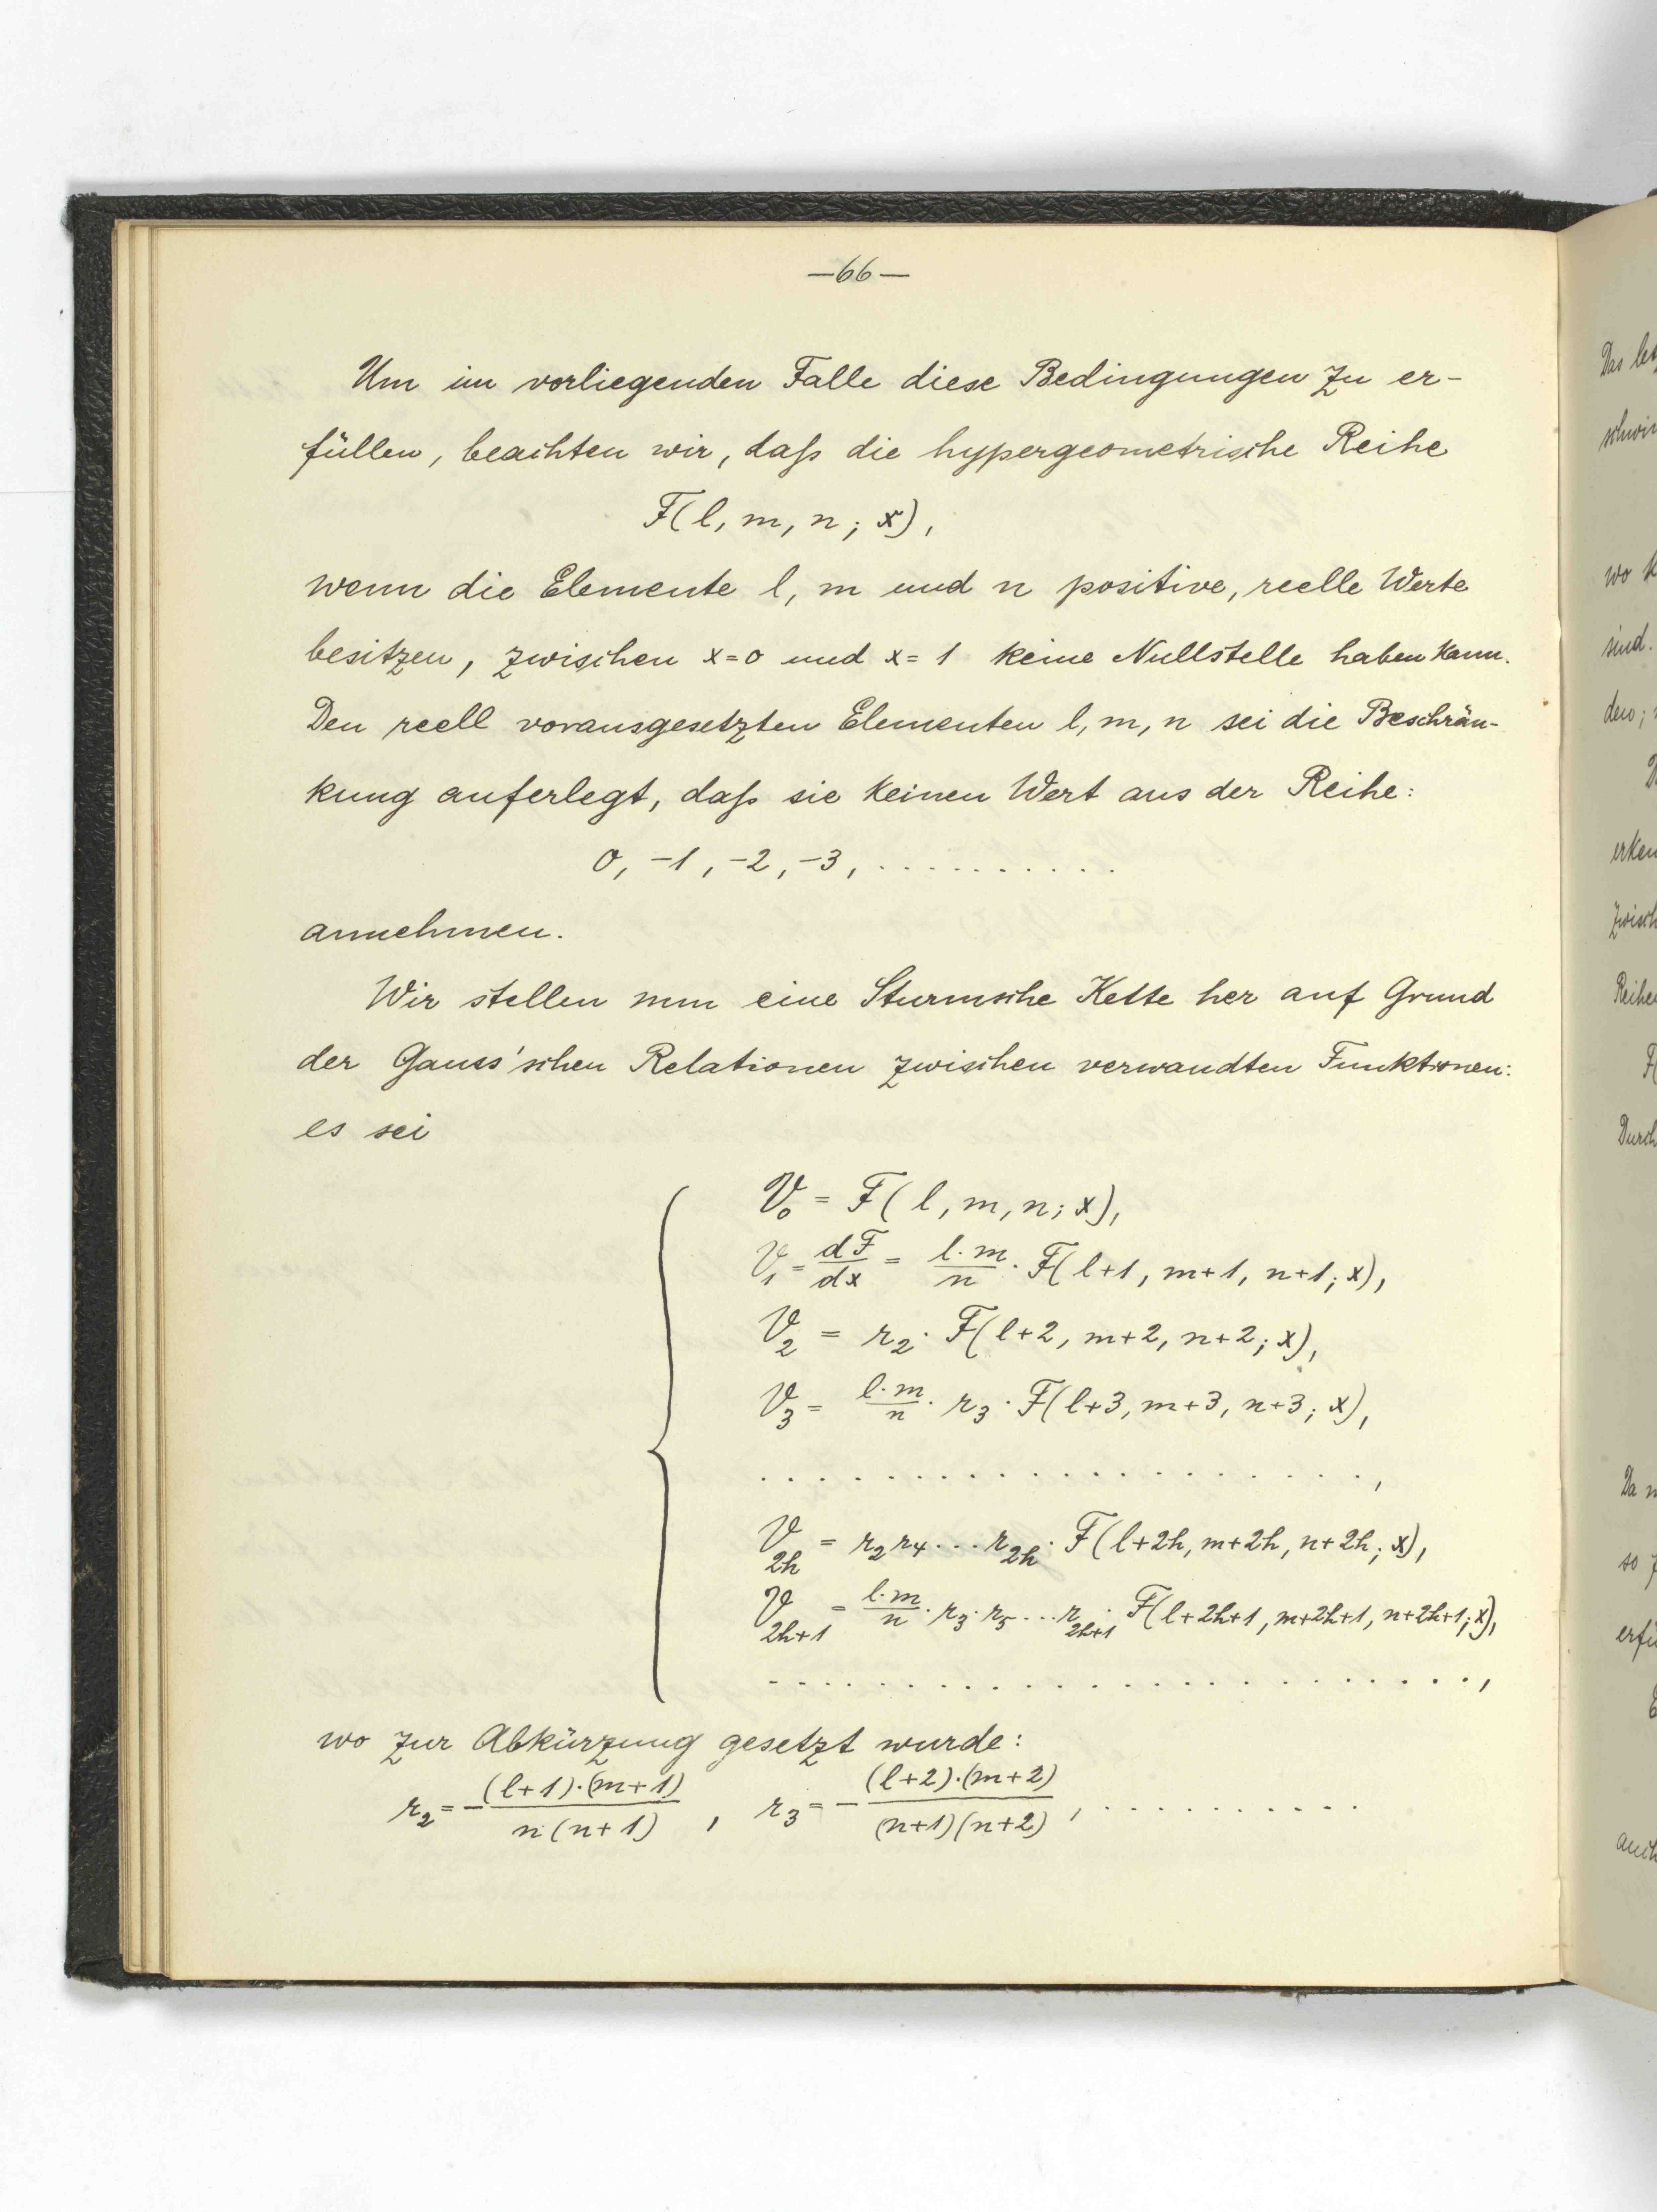 —66—
Um im vorliegenden Falle diese Bedingungen zu er-
füllen, beachten wir, daß die hypergeometrische Reihe
F(l, m, n; x),
wenn die Elemente l, m und n positive, reelle Werte
besitzen, zwischen x=0 und x=1 keine Nullstelle haben kann.
Den reell vorausgesetzten Elementen l, m, n sei die Beschrän-
kung auferlegt, daß sie keinen Wert aus der Reihe:
0, -1, -2, -3, ..........
annehmen.
Wir stellen nun eine Sturmsche Kette her auf Grund
der Gauss'schen Relationen zwischen verwandten Funktionen:
es sei
V₀ = F(l, m, n; x),
V₁ = dF/dx = l·m/n · F(l+1, m+1, n+1; x),
V₂ = r₂ · F(l+2, m+2, n+2; x),
V₃ = l·m/n · r₃ · F(l+3, m+3, n+3; x),
....................,
V_{2h} = r₂ r₄ ... r_{2h} · F(l+2h, m+2h, n+2h; x),
V_{2h+1} = l·m/n · r₃ · r₅ ... r_{2h+1} · F(l+2h+1, m+2h+1, n+2h+1; x),
........................,
wo zur Abkürzung gesetzt wurde:
r₂ = -(l+1)·(m+1)/n(n+1), r₃ = -(l+2)·(m+2)/(n+1)(n+2), ...........
Das
wo
sind.